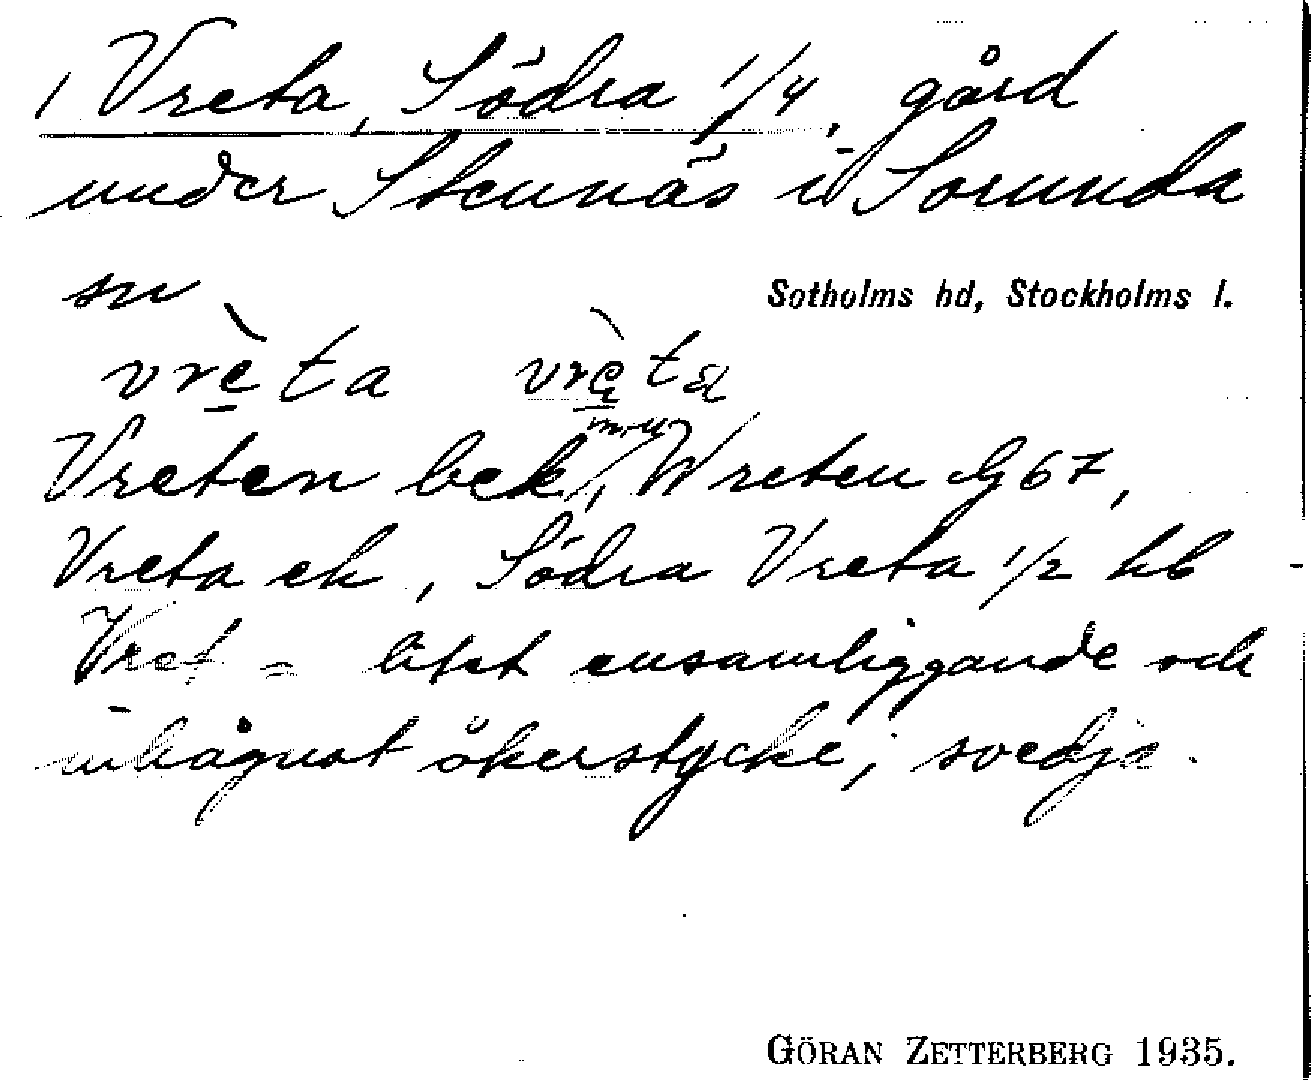 Vreta, Södra 1/4, gård
under Stennäs i Sorunda
sn
Sotholms hd, Stockholms l.
vrèta vrèta
Vreten bek, Wreten Gg 67,
Vreta ek, Södra Vreta 1/2 hb
Vret = litet ensamliggande och
inhägnat åkerstycke; svedja.
GÖRAN ZETTERBERG 1935.